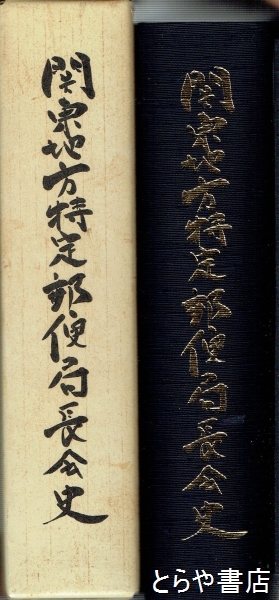 関東地方特定郵便局長会史
関東地方特定郵便局長会史
とらや書店